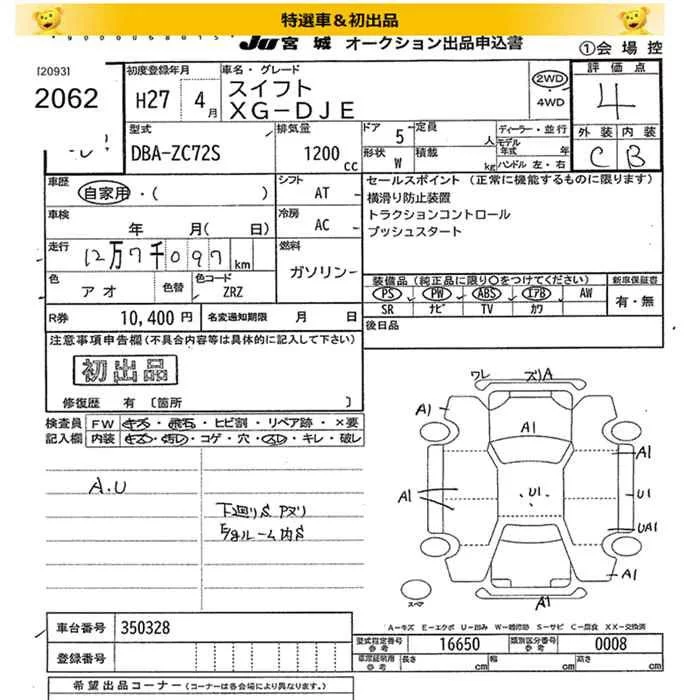 特選車＆初出品
JU宮城 オークション出品申込書
①会場控
[2093]
2062
初度登録年月
H27 4月
車名・グレード
スイフト
XG-DJE
2WD
・4WD
評価点
4
外装 内装
C B
型式
DBA-ZC72S
排気量
1200cc
ドア 5
定員 人
形状 W
積載 kg
ディーラー・並行
モデル年式 年
ハンドル 左・右
車歴
自家用・( )
シフト
AT
セールスポイント (正常に機能するものに限ります)
横滑り防止装置
トラクションコントロール
プッシュスタート
車検
年 月( 日)
冷房
AC
走行
12万7千097km
燃料
ガソリン
色
アオ
色替
色コード
ZRZ
装備品 (純正品に限り○をつけてください)
新車保証書
PS PW ABS エアB AW
SR ナビ TV カワ
有・無
R券 10,400円
名変通知期限 月 日
後日品
注意事項申告欄(不具合内容等は具体的に記入して下さい)
初出品
修復歴 有 [箇所 ]
検査員 FW キズ・飛石・ヒビ割・リペア跡・×要
記入欄 内装 キズ・汚レ・コゲ・穴・スレ・キレ・破レ
A.U
下廻りS
ワレ
ズリA
A1
A1
A1
A1
U1
U1
UA1
A1
A1
スペア
A-キズ E-エクボ U-凹み W-補修跡 S-サビ C-腐食 XX-交換済
車台番号 350328
登録番号
型式指定番号 16650 類別区分番号 0008
長さ cm 幅 cm 高さ cm
希望出品コーナー (コーナーは各会場により異なります。)